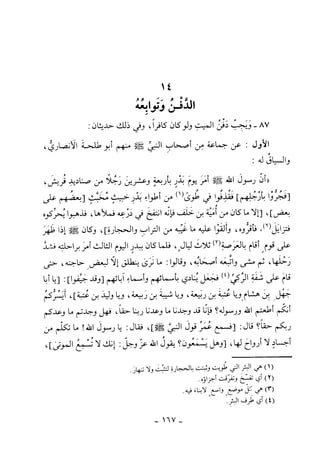 ١٤
الدَّفْنُ وَتَوابِعُهُ
٨٧ - وَيَجِبُ دَفْنُ الميتِ ولو كان كافراً، وفي ذلك حديثان:
الأول : عن جماعة من أصحاب النبيِّ ﷺ منهم أبو طلحة الأنصاريُّ،
والسياقُ له :
«أنَّ رسولَ الله ﷺ أمَرَ يومَ بَدْرٍ بأربعةٍ وعشرينَ رَجُلاً من صناديدِ قريش،
[فَجُرُّوا بأرْجُلِهِم] فَقُذِفُوا في طَوِيٍّ(١) من أطواءِ بَدْرٍ خبيثٍ مُخْبِثٍ [بعضهم على
بعض]، [إلا ما كان من أُمَيَّة بن خَلَف فإنَّه انتفخ في دِرْعِه فملأها، فذهبوا يُحرِّكوه
فتزايَلَ(٢)، فأقرُّوه، وألقَوْا عليه ما غَيَّبه من التُرابِ والحجارةِ]، وكان ﷺ إذا ظَهَرَ
على قومٍ أقامَ بالعَرْصةِ(٣) ثلاثَ ليالٍ، فلما كان ببدرٍ اليوم الثالث أمرَ براحلتِه فشُدَّ
رَحْلُها، ثم مشى واتَّبعه أصحابُه، وقالوا: ما نَرى ينطلق إلا لبعض حاجته، حتى
قامَ على شَفَةِ الرَّكِيِّ(٤) فجعلَ يُنادي بأسمائهم وأسماء آبائهم [وقد جَيَّفُوا]: [يا أبا
جهْلِ بن هشامٍ ويا عُتبة بن ربيعة، ويا شيبة بن ربيعة، ويا وليد بن عُتبة]، أيَسُرُّكم
أنكم أطعتم الله ورسوله؟ فإنَّا قد وجدنا ما وعدنا ربنا حقاً، فهل وجدتم ما وعدكم
ربكم حقاً؟ قال: [فسمع عُمَرُ قولَ النبيِّ ﷺ]، فقال: يا رسول الله! ما تكلّم من
أجسادٍ لا أرواحَ لها، [وهل يَسْمَعُون؟ يقولُ الله عزَّ وجلَّ: إنك لا تُسمِعُ الموتى]،
(١) هي البئر التي طُويت وثبتت بالحجارة لتثبُت ولا تنهار.
(٢) أي تفسَّخ وتفرَّقت أجزاؤه.
(٣) هي كلُّ موضع واسع لا بناء فيه.
(٤) أي طرف البئر.
- ١٦٧ -